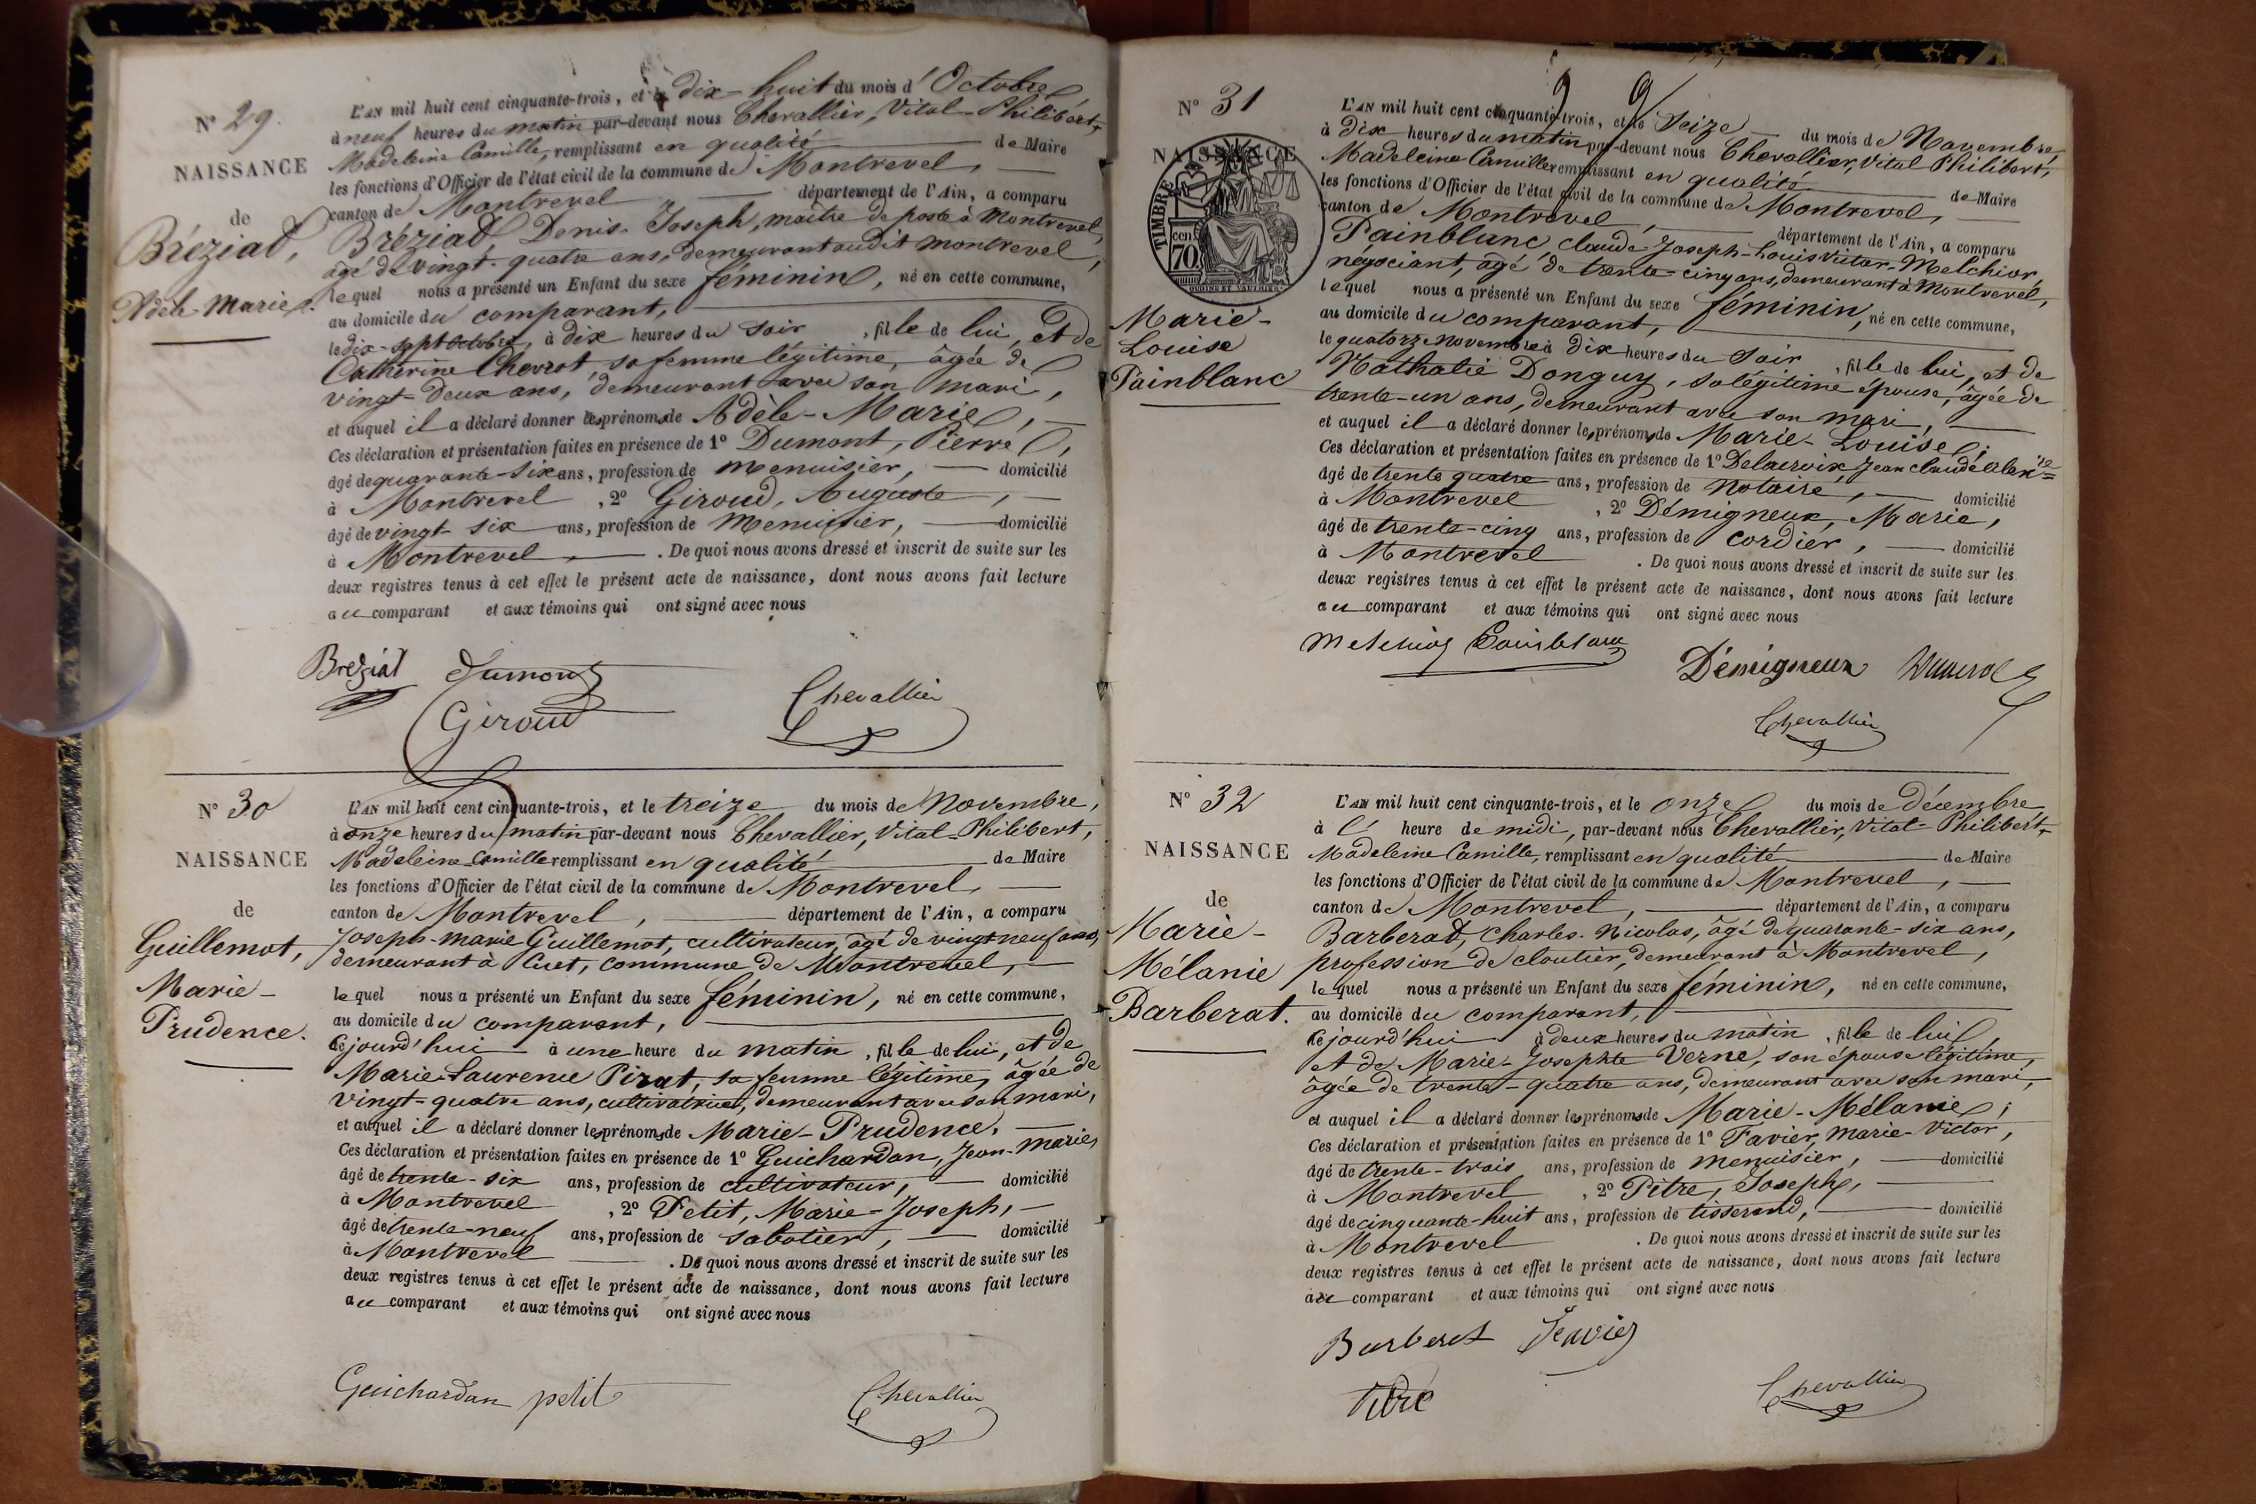 N° 29
NAISSANCE
de
Bréziat,
Adèle Marie.
L'AN mil huit cent cinquante-trois, et le dix-huit du mois d'Octobre
à neuf heures du matin par-devant nous Chevallier, Vital-Philibert,
Madeleine Camille, remplissant en qualité de Maire
les fonctions d'Officier de l'état civil de la commune de Montrevel,
canton de Montrevel, département de l'Ain, a comparu
Bréziat, Denis-Joseph, maître de poste à Montrevel,
âgé de vingt-quatre ans, demeurant audit Montrevel,
lequel nous a présenté un Enfant du sexe féminin, né en cette commune,
au domicile du comparant,
le dix-sept octobre, à dix heures du soir, fille de lui, et de
Catherine Chevrot, sa femme légitime, âgée de
vingt-deux ans, demeurant avec son mari,
et auquel il a déclaré donner les prénoms de Adèle-Marie,
Ces déclaration et présentation faites en présence de 1° Dumont, Pierre,
âgé de quarante-six ans, profession de menuisier, domicilié
à Montrevel, 2° Giroud, Auguste,
âgé de vingt-six ans, profession de menuisier, domicilié
à Montrevel. De quoi nous avons dressé et inscrit de suite sur les
deux registres tenus à cet effet le présent acte de naissance, dont nous avons fait lecture
au comparant et aux témoins qui ont signé avec nous
Breziat Dumont
Giroud Chevallier
N° 30
NAISSANCE
de
Guillemot,
Marie-
Prudence.
L'AN mil huit cent cinquante-trois, et le treize du mois de Novembre,
à onze heures du matin par-devant nous Chevallier, Vital-Philibert,
Madeleine-Camille remplissant en qualité de Maire
les fonctions d'Officier de l'état civil de la commune de Montrevel,
canton de Montrevel, département de l'Ain, a comparu
Joseph-Marie Guillemot, cultivateur, âgé de vingt neuf ans,
demeurant à Cuet, commune de Montrevel,
lequel nous a présenté un Enfant du sexe féminin, né en cette commune,
au domicile du comparant,
Cejourd'hui à une heure du matin, fille de lui, et de
Marie-Laurence Pirat, sa femme légitime, âgée de
vingt-quatre ans, cultivatrice, demeurant avec son mari,
et auquel il a déclaré donner les prénoms de Marie-Prudence.
Ces déclaration et présentation faites en présence de 1° Guichardan, Jean-Marie,
âgé de trente-six ans, profession de cultivateur, domicilié
à Montrevel, 2° Petit, Marie-Joseph,
âgé de trente-neuf ans, profession de sabotier, domicilié
à Montrevel. De quoi nous avons dressé et inscrit de suite sur les
deux registres tenus à cet effet le présent acte de naissance, dont nous avons fait lecture
au comparant et aux témoins qui ont signé avec nous
Guichardan petit Chevallier
N° 31
NAISSANCE
TIMBRE
70
cen
Marie-
Louise
Painblanc
L'AN mil huit cent cinquante-trois, et le seize du mois de Novembre
à dix heures du matin par-devant nous Chevallier, Vital Philibert,
Madeleine Camille remplissant en qualité de Maire
les fonctions d'Officier de l'état civil de la commune de Montrevel,
canton de Montrevel, département de l'Ain, a comparu
Painblanc Claude Joseph-Louis Victor-Melchior,
négociant, âgé de trente-cinq ans, demeurant à Montrevel,
lequel nous a présenté un Enfant du sexe féminin, né en cette commune,
au domicile du comparant,
le quatorze novembre à dix heures du soir, fille de lui, et de
Nathalie Donguy, sa légitime épouse, âgée de
trente-un ans, demeurant avec son mari,
et auquel il a déclaré donner les prénoms de Marie-Louise,
Ces déclaration et présentation faites en présence de 1° Delacroix Jean Claude Alexre
âgé de trente quatre ans, profession de notaire, domicilié
à Montrevel, 2° Démigneux, Marie,
âgé de trente-cinq ans, profession de cordier, domicilié
à Montrevel. De quoi nous avons dressé et inscrit de suite sur les
deux registres tenus à cet effet le présent acte de naissance, dont nous avons fait lecture
au comparant et aux témoins qui ont signé avec nous
Melchior Painblanc
Démigneux
Chevallier
N° 32
NAISSANCE
de
Marie-
Mélanie
Barberat.
L'AN mil huit cent cinquante-trois, et le onze du mois de décembre
à l' heure de midi, par-devant nous Chevallier, Vital-Philibert,
Madeleine Camille, remplissant en qualité de Maire
les fonctions d'Officier de l'état civil de la commune de Montrevel,
canton de Montrevel, département de l'Ain, a comparu
Barberat, Charles-Nicolas, âgé de quarante-six ans,
profession de cloutier, demeurant à Montrevel,
lequel nous a présenté un Enfant du sexe féminin, né en cette commune,
au domicile du comparant,
Cejourd'hui à deux heures du matin, fille de lui,
et de Marie-Josephte Verne, son épouse légitime,
âgée de trente-quatre ans, demeurant avec son mari,
et auquel il a déclaré donner les prénoms de Marie-Mélanie,
Ces déclaration et présentation faites en présence de 1° Favier, Marie-Victor,
âgé de trente-trois ans, profession de menuisier, domicilié
à Montrevel, 2° Pitre, Joseph,
âgé de cinquante-huit ans, profession de tisserand, domicilié
à Montrevel. De quoi nous avons dressé et inscrit de suite sur les
deux registres tenus à cet effet le présent acte de naissance, dont nous avons fait lecture
au comparant et aux témoins qui ont signé avec nous
Barberat Favier
Pitre Chevallier